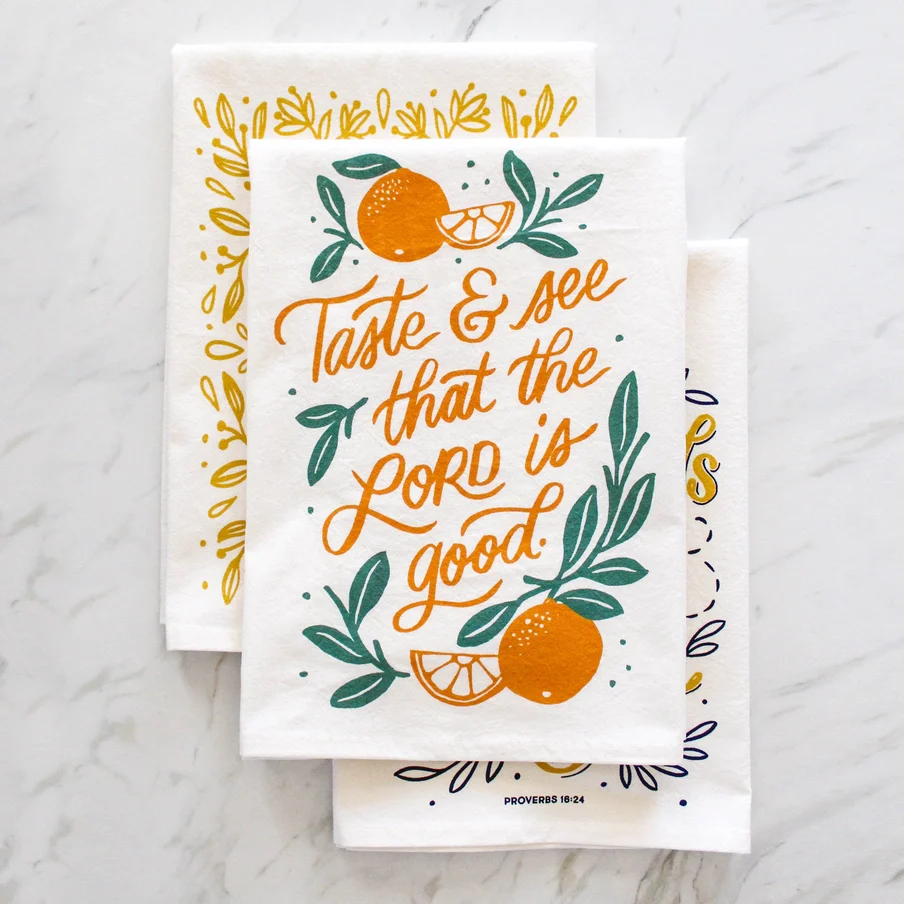 Taste & see
that the
LORD is
good.
PROVERBS 16:24